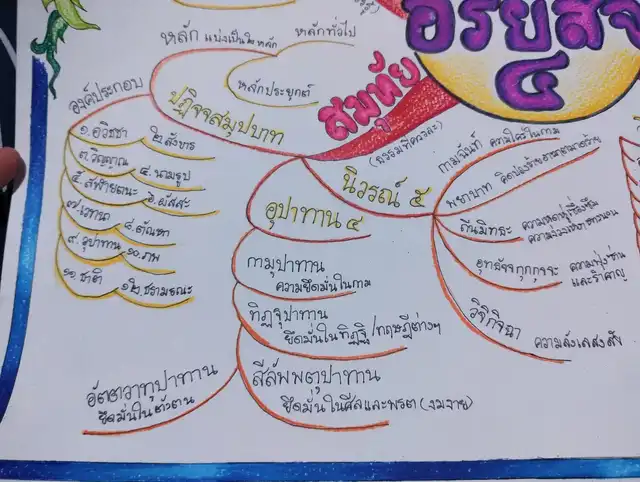 อริยสัจ
๔
สมุทัย
(ธรรมที่ควรละ)
หลัก แบ่งเป็น๒หลัก
หลักทั่วไป
หลักประยุกต์
ปฏิจจสมุปบาท
องค์ประกอบ
๑.อวิชชา
๒.สังขาร
๓.วิญญาณ
๔.นามรูป
๕.สฬายตนะ
๖.ผัสสะ
๗.เวทนา
๘.ตัณหา
๙.อุปาทาน
๑๐.ภพ
๑๑.ชาติ
๑๒.ชรามรณะ
อุปาทาน ๔
กามุปาทาน
ความยึดมั่นในกาม
ทิฏฐุปาทาน
ยึดมั่นในทิฏฐิ/ทฤษฎีต่างๆ
สีลัพพตุปาทาน
ยึดมั่นในศีลและพรต (งมงาย)
อัตตวาทุปาทาน
ยึดมั่นในตัวตน
นิวรณ์ ๕
กามฉันท์ ความใคร่ในกาม
พยาบาท
ถีนมิทธะ ความหดหู่ซึ่งซึม
อุทธัจจกุกกุจจะ ความฟุ้งซ่าน
และรำคาญ
วิจิกิจฉา ความลังเลสงสัย